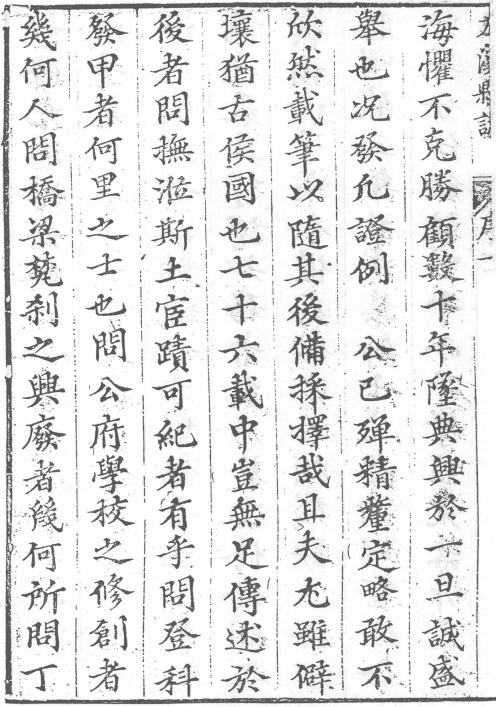 尤溪縣誌 序 一
海懼不克勝顧數十年隆典興於一旦誠盛
舉也况發凡證例　公已殫精釐定略敢不
欣然載筆以隨其後備採擇哉且夫尤雖僻
壤猶古侯國也七十六載中豈無足傳述於
後者問撫涖斯土宦蹟可紀者有乎問登科
發甲者何里之士也問公府學校之修創者
幾何人問橋梁梵刹之興廢者幾何所問丁